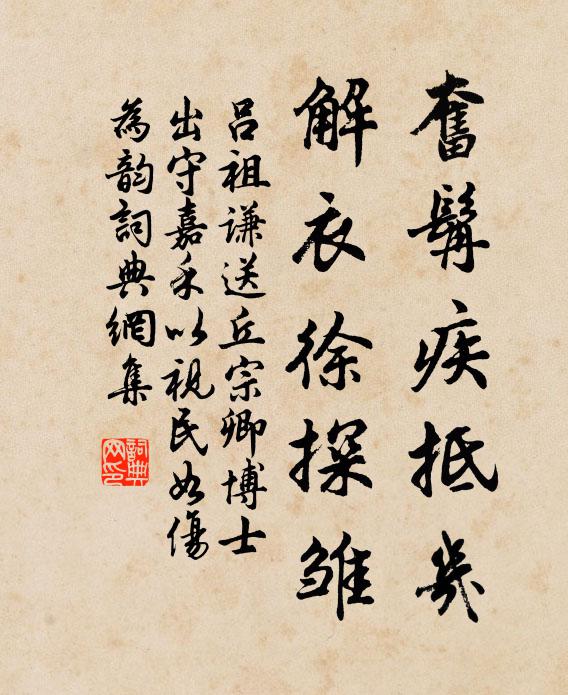 奮髯疾抵幾
解衣徐探雏
呂祖謙送丘宗卿博士
出守嘉禾以視民如傷
為韵詞典網集
詞典
网印